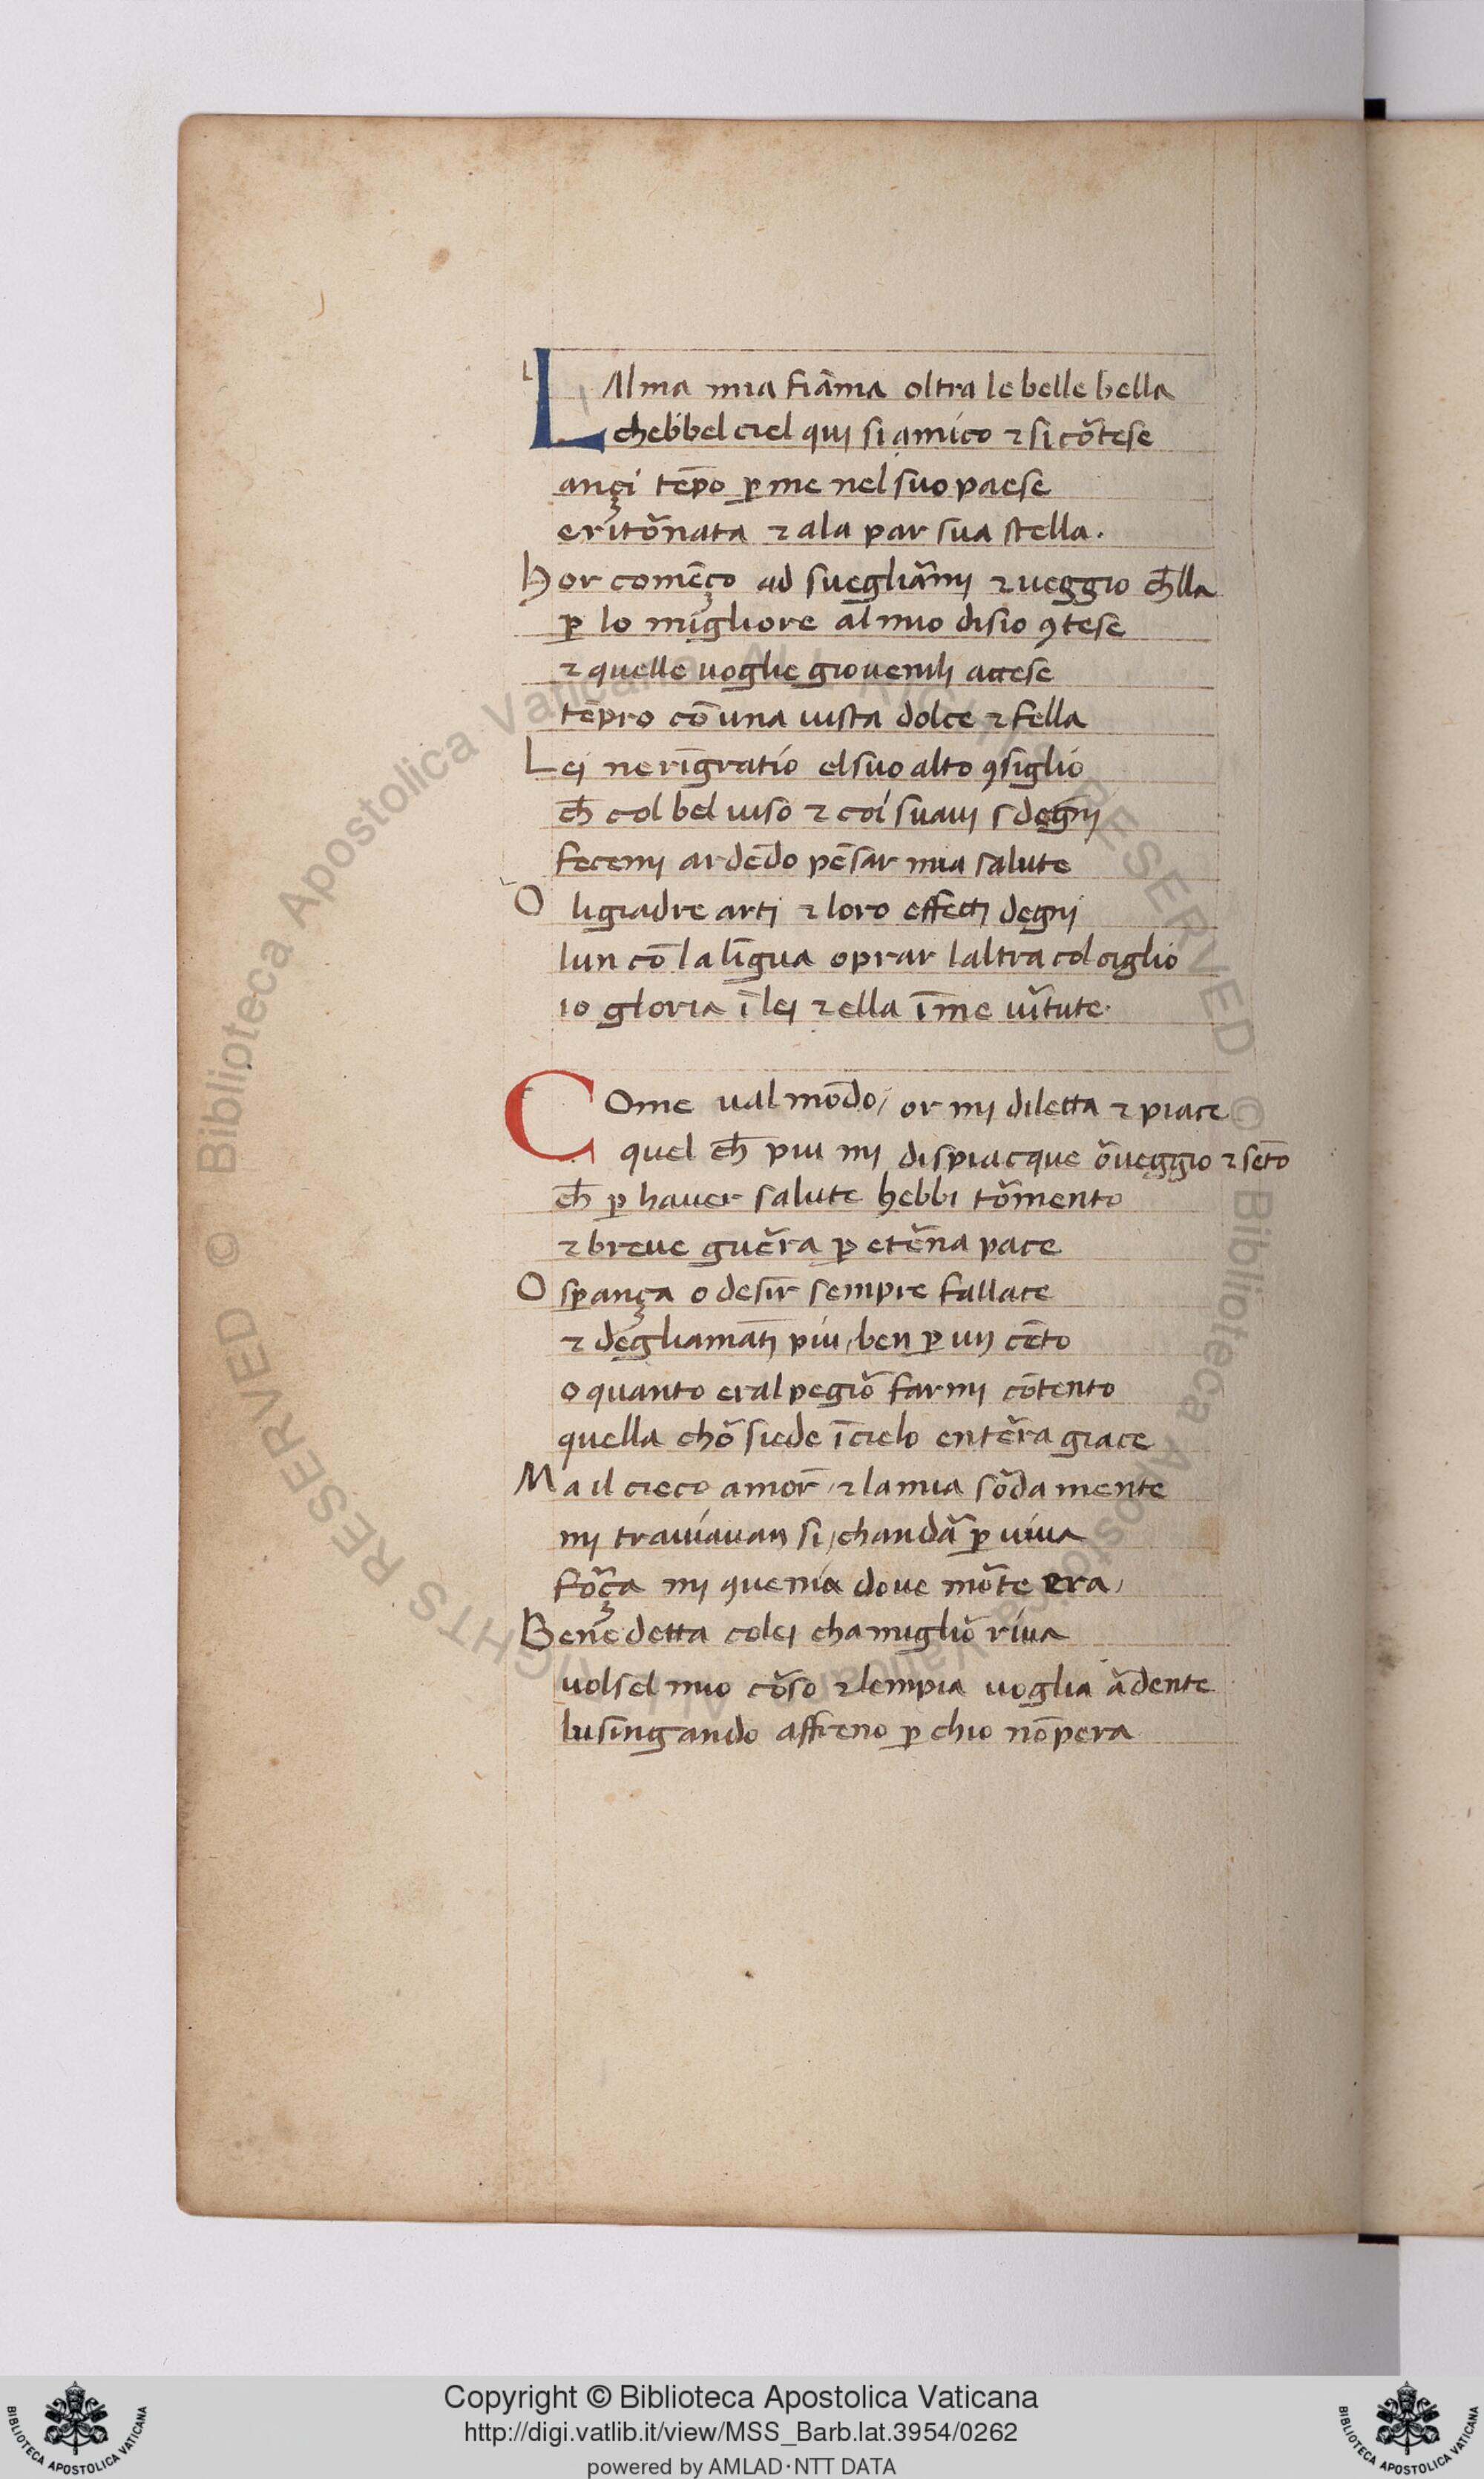 L Alma mia fiāma oltra le belle bella
chebbel ciel qui si amico ⁊ si cõtese
ançi tēpo ꝑ me nel suo paese
eritõnata ⁊ ala par sua stella.
Hor comēço ad suegliãmj ⁊ ueggio ch̄lla
ꝑ lo migliore al mio disio ꝯtese
⁊ quelle uoglie giouenilj accese
tēpro cō una uista dolce ⁊ fella
Lej ne rīgratio el suo alto ꝯsiglio
ch̄ col bel uiso ⁊ coi suauj sdegnj
fecemj ardēdo pēsar mia salute
O ligiadre artj ⁊ loro effectj degnj
lun cō la līgua oprar laltra col ciglio
io gloria ī lej ⁊ ella ī me uĩtute.
Come ual mōdo / or mj diletta ⁊ piace
quel ch̄ piu mj dispiacque õ ueggio ⁊ sēto
ch̄ ꝑ hauer salute hebbi tõmento
⁊ breue guẽra ꝑ etẽna pace
O sꝑança o desir̄ sempre fallace
⁊ degliamātj piu / ben ꝑ un cēto
o quanto eral pegiõ farmj cōtento
quella chõ siede ī cielo entẽra giace
Ma il cieco amor̄ / ⁊ la mia sõda mente
mj trauiauan si / chandã ꝑ uiua
foc̃a mj ꝯuenia doue mõte era /
Benedetta colej cha migliõ riua
uolsel mio cõso ⁊ lempia uoglia ãdente
lusingando affreno ꝑ chio nō pera
Copyright © Biblioteca Apostolica Vaticana
http://digi.vatlib.it/view/MSS_Barb.lat.3954/0262
powered by AMLAD·NTT DATA
BIBLIOTECA APOSTOLICA VATICANA
BIBLIOTECA APOSTOLICA VATICANA